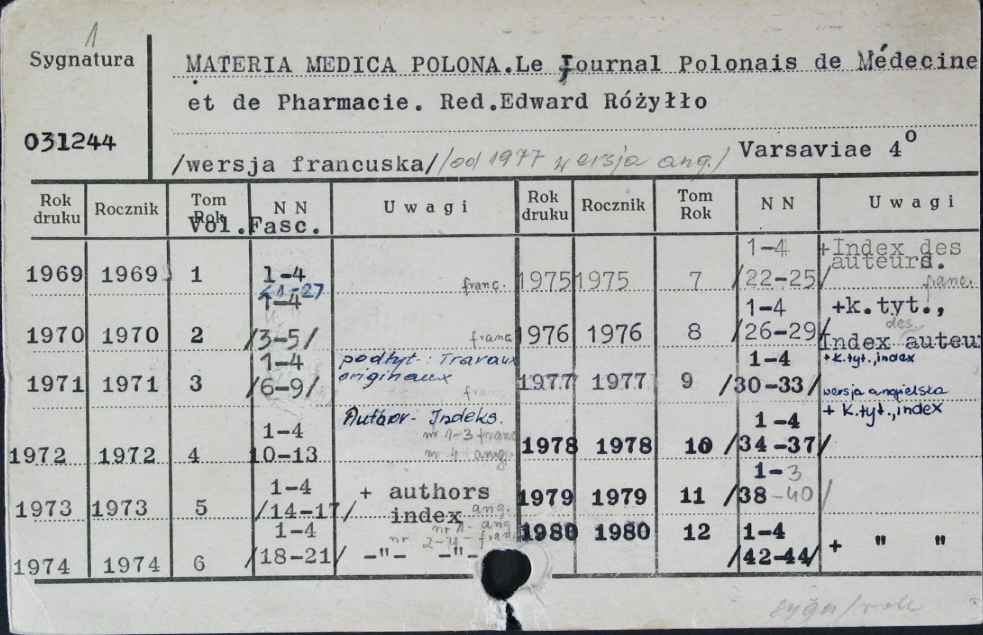 1
Sygnatura
MATERIA MEDICA POLONA.Le Journal Polonais de Médecine
et de Pharmacie. Red.Edward Różyłło
031244
/wersja francuska/ /od 1977 wersja ang./ Varsaviae 4°
Rok druku Rocznik Tom Rok Vol. N N Fasc. Uwagi Rok druku Rocznik Tom Rok N N Uwagi
1969 1969 1 1-4 franc.
1970 1970 2 1-4 /3-5/ franc
1971 1971 3 1-4 /6-9/ podtyt: Travaux originaux
1972 1972 4 1-4 10-13 Author- Indeks. nr 1-3 franc nr 4 ang.
1973 1973 5 1-4 /14-17/ + authors index ang.
1974 1974 6 1-4 /18-21/ nr 1- ang nr 2-4- franc -"- -"-
1975 1975 7 1-4 /22-25/ +Index des auteurs. franc.
1976 1976 8 1-4 /26-29/ +k.tyt., des Index auteu
1977 1977 9 1-4 /30-33/ +k.tyt.,index wersja angielska
1978 1978 10 1-4 /34-37/ + k.tyt.,index
1979 1979 11 1-3 /38-40/
1980 1980 12 1-4 /42-44/ + " "